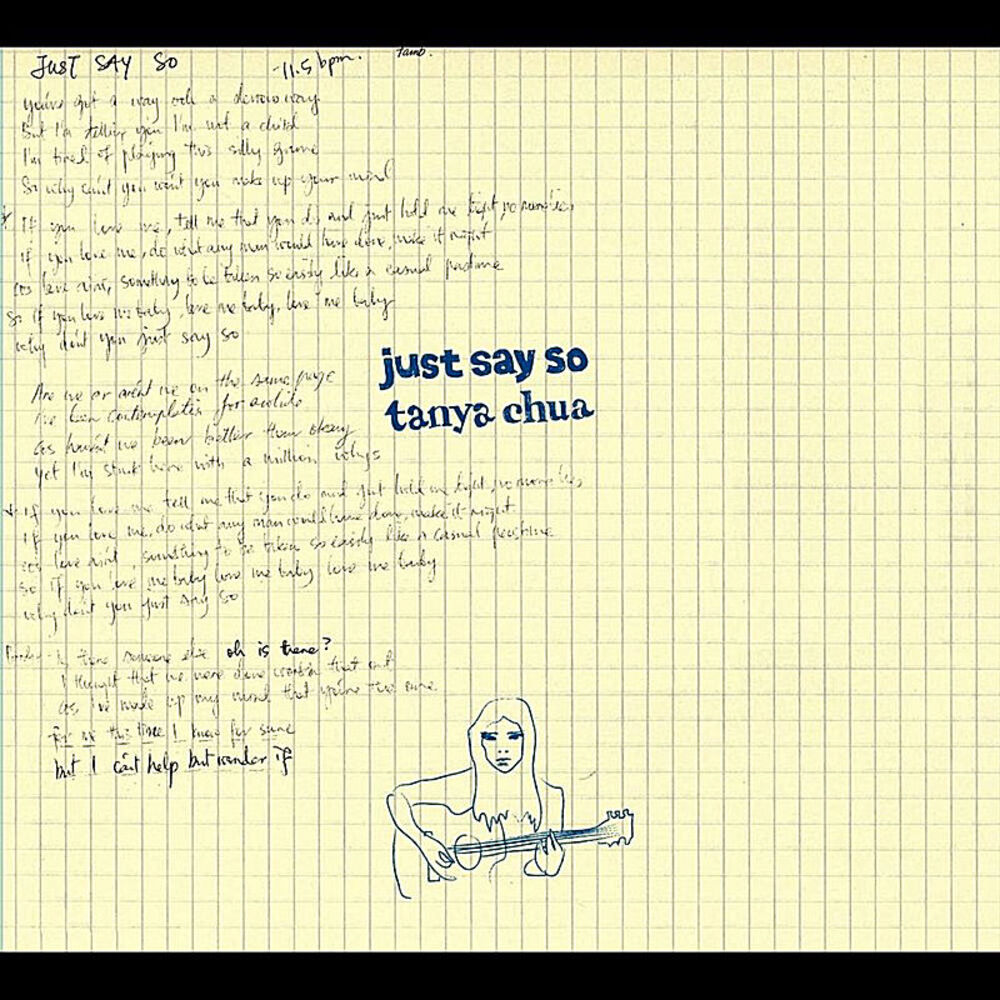 JUST SAY SO
11.5 bpm.
You've got a way ooh a devious way
But I'm telling you I'm not a child
I'm tired of playing this silly game
So why can't you won't you make up your mind
* If you love me, tell me that you do, and just hold me tight, no more lies
If you love me, do what any man would have done, make it right
cos love ain't, something to be taken so easily like a casual pastime
So if you love me baby, love me baby, love me baby
why don't you just say so
just say so
tanya chua
Are we or aren't we on the same page
I've been contemplating for awhile
cos haven't we been better than okay
Yet I'm stuck here with a million whys
* If you love me tell me that you do and just hold me tight, no more lies
If you love me, do what any man would have done, make it right
cos love ain't, something to be taken so easily like a casual pastime
so if you love me baby love me baby love me baby
why don't you just say so
Is there someone else oh is there?
I thought that we were done with that
cos I've made up my mind that you're the one
for me this time I know for sure
but I can't help but wonder if